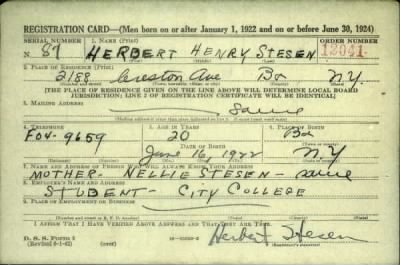 REGISTRATION CARD—(Men born on or after January 1, 1922 and on or before June 30, 1924)
SERIAL NUMBER 1. NAME (Print) ORDER NUMBER
N 87 HERBERT HENRY STESEN 12041
2. PLACE OF RESIDENCE (Print)
2188 Creston Ave Bx N.Y.
[THE PLACE OF RESIDENCE GIVEN ON THE LINE ABOVE WILL DETERMINE LOCAL BOARD
JURISDICTION; LINE 2 OF REGISTRATION CERTIFICATE WILL BE IDENTICAL]
3. MAILING ADDRESS
Same
4. TELEPHONE 5. AGE IN YEARS 6. PLACE OF BIRTH
FO4-9659 20 Bx
DATE OF BIRTH
June 16, 1922 N.Y
7. NAME AND ADDRESS OF PERSON WHO WILL ALWAYS KNOW YOUR ADDRESS
MOTHER- NELLIE STESEN - same
8. EMPLOYER'S NAME AND ADDRESS
STUDENT- CITY COLLEGE
9. PLACE OF EMPLOYMENT OR BUSINESS
I AFFIRM THAT I HAVE VERIFIED ABOVE ANSWERS AND THAT THEY ARE TRUE.
D. S. S. Form 1
(Revised 6-1-42)
Herbert Stesen
(Registrant's signature)